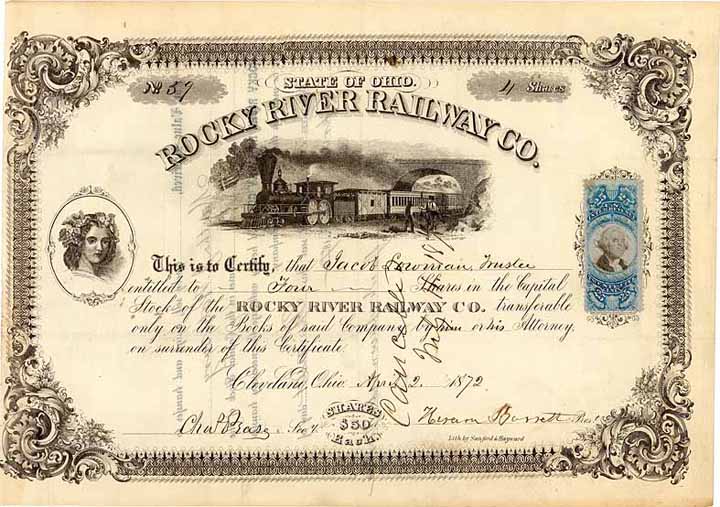 STATE OF OHIO.
No 59
4 Shares
ROCKY RIVER RAILWAY CO.
This is to Certify, that Jacob Lowman, Trustee
entitled to Four Shares in the Capital
Stock of the ROCKY RIVER RAILWAY CO. transferable
only on the Books of said Company by him or his Attorney
on surrender of this Certificate
Cleveland, Ohio. Apr 2 1872
Chas Pease Secy.
SHARES
$50
EACH.
Hiram Barrett Prest
Lith by Sanford & Hayward
Cancelled